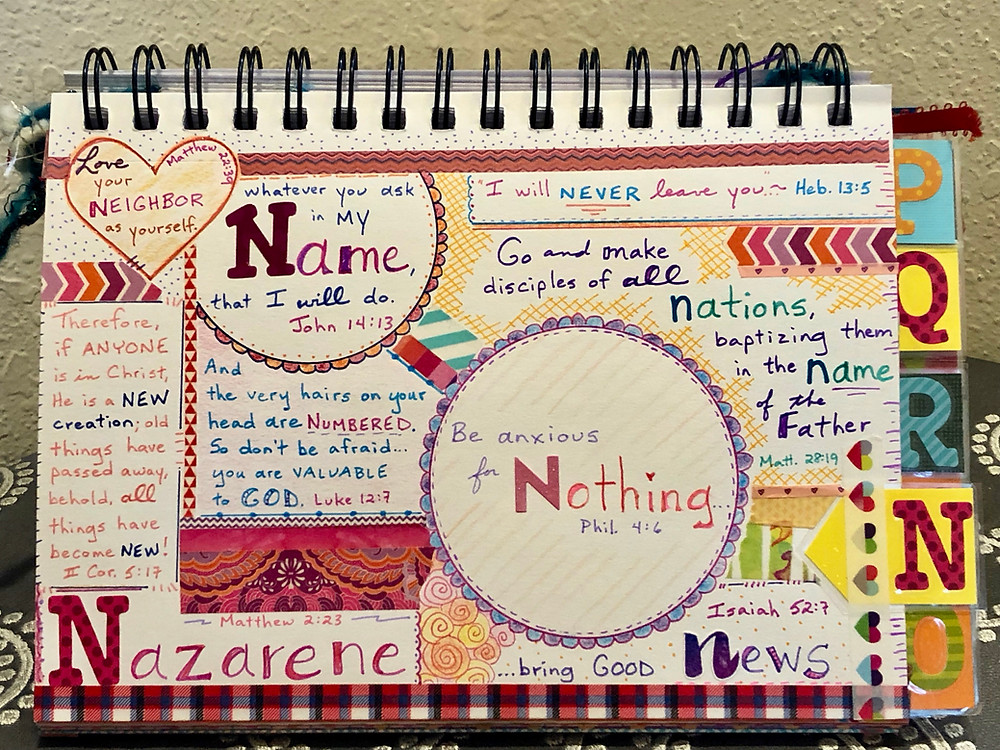 Love
your
NEIGHBOR
as yourself.
Matthew 22:39
whatever you ask
in MY
Name,
that I will do.
John 14:13
"I will NEVER leave you"~ Heb. 13:5
Go and make
disciples of all
nations,
baptizing them
in the name
of the
Father
Matt. 28:19
Therefore,
if ANYONE
is in Christ,
He is a NEW
creation; old
things have
passed away,
behold, all
things have
become NEW!
II Cor. 5:17
And
the very hairs on your
head are NUMBERED.
So don't be afraid...
you are VALUABLE
to GOD. Luke 12:7
Be anxious
for Nothing...
Phil. 4:6
Matthew 2:23
Nazarene
Isaiah 52:7
...bring GOOD news
P
Q
R
N
O